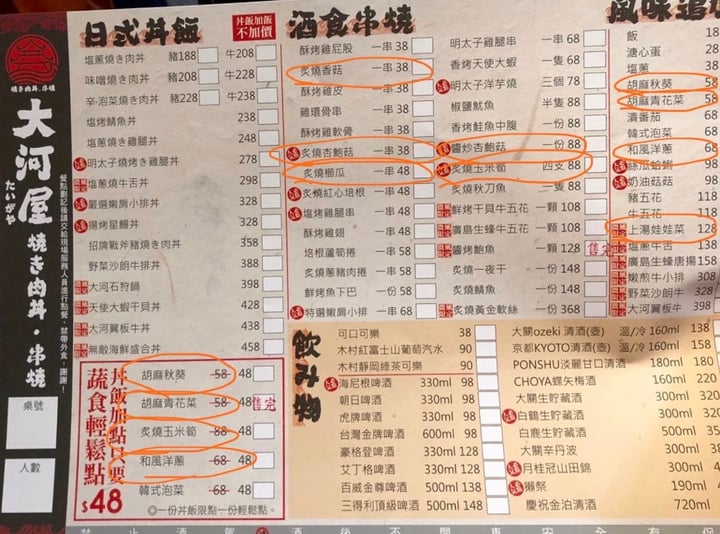 燒き肉丼.串燒
大河屋
たいがや
燒き肉丼・串燒
餐點劃記後請交給現場服務人員進行點餐,禁帶外食,謝謝!
桌號
人數
日式丼飯
丼飯加飯
不加價
塩蔥燒き肉丼 豬188 牛208
味噌燒き肉丼 豬208 牛228
辛泡菜燒き肉丼 豬228 牛238
塩烤鯖魚丼 238
塩蔥燒き雞腿丼 248
明太子燒烤き雞腿丼 278
塩蔥燒き牛舌丼 298
嚴選嫩肩小排丼 298
揚烤星鰻丼 298
招牌戰斧豬燒き肉丼 358
野菜沙朗牛排丼 388
大河石狩鍋 398
天使大蝦干貝丼 428
大河翼板牛丼 438
無敵海鮮盛合丼 458
丼飯加點只要
蔬食輕鬆點
$48
胡麻秋葵 58 48
胡麻青花菜 58 售完
炙燒玉米筍 88 48
和風洋蔥 68 48
韓式泡菜 68 48
◎一份丼飯限點一份輕鬆點。
酒食串燒
酥烤雞屁股 一串 38
炙燒香菇 一串 38
酥烤雞皮 一串 38
雞環骨串 一串 38
酥烤雞軟骨 一串 38
炙燒杏鮑菇 一串 38
炙燒櫛瓜 一串 48
炙燒紅心培根 一串 48
塩烤雞腿串 一串 48
酥烤雞翅 一串 48
培根蘆筍捲 一串 58
炙燒蔥豬肉捲 一串 58
鮮烤魚下巴 一份 58
特選嫩肩小排 一串 68
明太子雞腿串 一串 68
香烤天使大蝦 一隻 68
明太子洋芋燒 三個 78
椒鹽魷魚 半隻 88
香烤鮭魚中腹 一份 88
醬炒杏鮑菇 一份 88
炙燒玉米筍 四支 88
炙燒秋刀魚 一隻 88
鮮烤干貝牛五花 一顆 108
廣島生蠔牛五花 一顆 108
醬烤鮑魚 一顆 128 售完
炙燒一夜干 一份 148
炙燒魚卵 一份 148
炙燒黃金軟絲 一份 368
風味追加
飯 18
溏心蛋 28
塩蔥 38
胡麻秋葵 58
胡麻青花菜 58
漬番茄 68
韓式泡菜 68
和風洋蔥 68
絲瓜蛤蜊 98
奶油菇菇 98
豬五花 118
牛五花 118
上湯娃娃菜 128
塩蔥牛舌 138
廣島生蠔唐揚 158
嫩煎牛小排 308
野菜沙朗牛 328
大河翼板牛 398
飲み物
可口可樂 38
木村紅富士山葡萄汽水 90
木村靜岡綠茶可樂 90
海尼根啤酒 330ml 98
朝日啤酒 330ml 98
虎牌啤酒 330ml 98
台灣金牌啤酒 600ml 98
豪格登啤酒 330ml 128
艾丁格啤酒 330ml 138
百威金尊啤酒 500ml 138
三得利頂級啤酒 500ml 148
大關ozeki 清酒(壺) 溫/冷 160ml 138
京都KYOTO清酒(壺) 溫/冷 160ml 158
PONSHU淡麗甘口清酒 180ml 180
CHOYA蝶矢梅酒 160ml
大關生貯藏酒 300ml
白鶴生貯藏酒 300ml
白鹿生貯藏酒 300ml
大關辛丹波 300ml
月桂冠山田錦 300ml
獺祭 190ml
慶祝金泊清酒 720ml